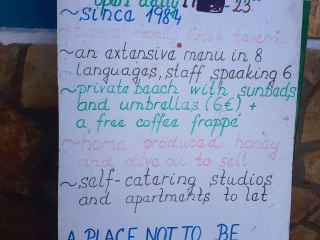 open daily 11 -23
~since 1984
~typical family Greek taverna
~an extansive menu in 8
languages, staff speaking 6
~private beach with sunbads
and umbrellas (6€) +
a free coffee frappé
~home produced honey
and olive oil to sell
~self-catering studios
and apartments to let
A PLACE NOT TO BE